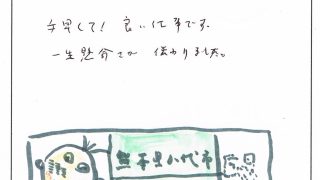 手早くて！良い仕事です。
一生懸命さが伝わりました。
熊本県八代市